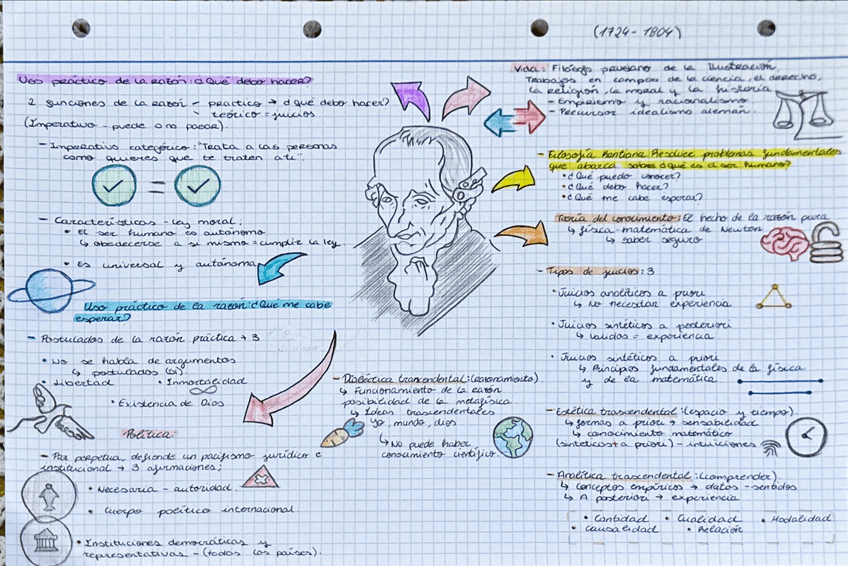 (1724-1804)
Uso práctico de la razón: ¿Qué debo hacer?
2 funciones de la razón - práctico → ¿qué debo hacer?
teórico = juicios
(Imperativo - puede o no pasar)
- Imperativo categórico: "Trata a las personas
como quieres que te traten a ti".
=
- Características - ley moral;
• El ser humano es autónomo
↳ obedecerse a sí mismo = cumplir la ley.
• Es universal y autónoma
Uso práctico de la razón: ¿Qué me cabe
esperar?
- Postulados de la razón práctica → 3
• No se habla de argumentos
↳ postulados (sí)
• Libertad • Inmortalidad
• Existencia de Dios
Política:
- Paz perpetua, defiende un pacifismo jurídico e
institucional → 3 afirmaciones;
• Necesaria - autoridad.
• Cuerpo político internacional.
• Instituciones democráticas y
representativas - (todos los países).
- Dialéctica trascendental: (razonamiento)
↳ Funcionamiento de la razón
posibilidad de la metafísica
↳ Ideas trascendentales
Yo, mundo, dios
↳ No puede haber
conocimiento científico.
Vida: Filósofo prusiano de la Ilustración.
Trabajos en campos de la ciencia, el derecho,
la religión, la moral y la historia
- Empirismo y racionalismo
- Precursor idealismo alemán.
- Filosofía Kantiana. Resolver problemas fundamentales
que abarca sobre ¿qué es el ser humano?
• ¿Qué puedo conocer?
• ¿Qué debo hacer?
• ¿Qué me cabe esperar?
Teoría del conocimiento: El hecho de la razón pura
↳ física-matemática de Newton
↳ saber seguro
- Tipos de juicios: 3
• Juicios analíticos a priori
↳ No necesitan experiencia
• Juicios sintéticos a posteriori
↳ válidos = experiencia
• Juicios sintéticos a priori
↳ Principios fundamentales de la física
y de la matemática.
- Estética trascendental: (espacio y tiempo)
↳ formas a priori → sensabilidad
↳ conocimiento matemático
(sintéticos + a priori) - intuiciones
- Analítica trascendental: (comprender)
↳ Conceptos empíricos → datos - sentidos
↳ A posteriori → experiencia
• Cantidad • Cualidad • Modalidad
• Causalidad • Relación